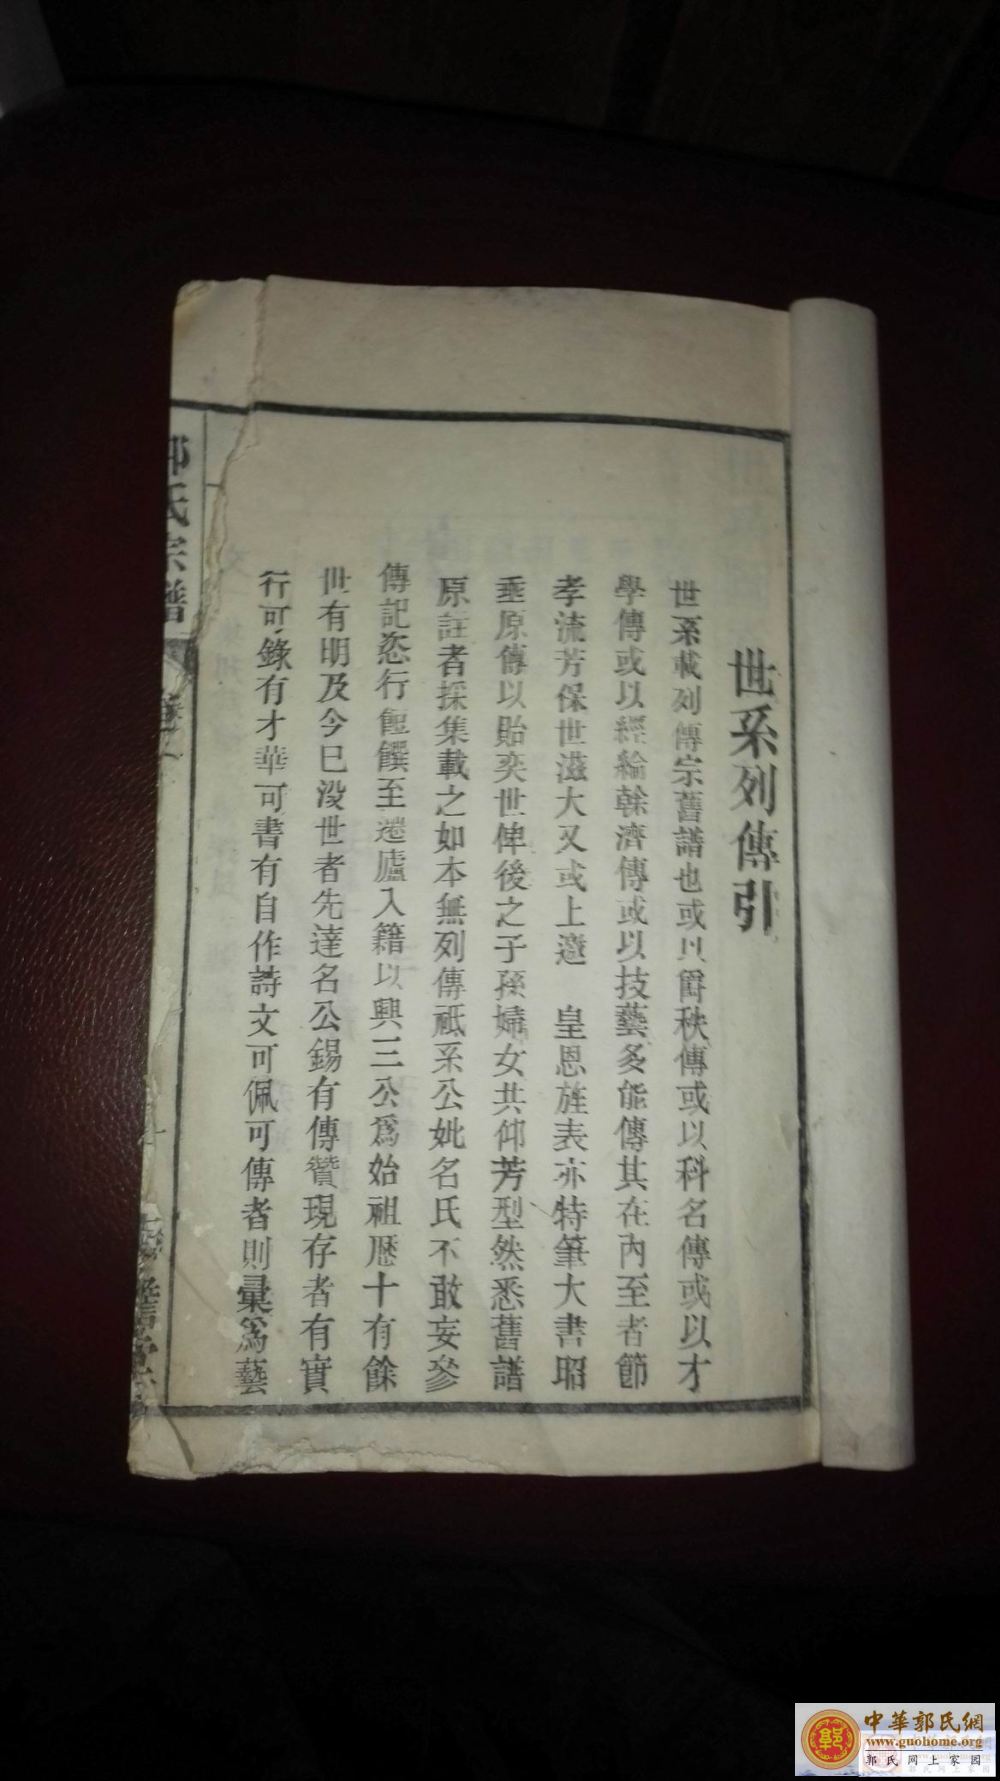 世系列傳引
世系載列傳宗舊譜也或以爵秩傳或以科名傳或以才
學傳或以經綸幹濟傳或以技藝多能傳其在內至者節
孝流芳保世滋大又或上邀 皇恩旌表亦特筆大書昭
垂原傳以貽奕世俾後之子孫婦女共仰芳型然悉舊譜
原註者採集載之如本無列傳祗系公妣名氏不敢妄參
傳記恣行飽饌至遷廬入籍以興三公為始祖歷十有餘
世有明及今已沒世者先達名公錫有傳贊現存者有實
行可錄有才華可書有自作詩文可佩可傳者則彙為藝
郭氏宗譜
中華郭氏網
www.guohome.org
郭氏网上家园